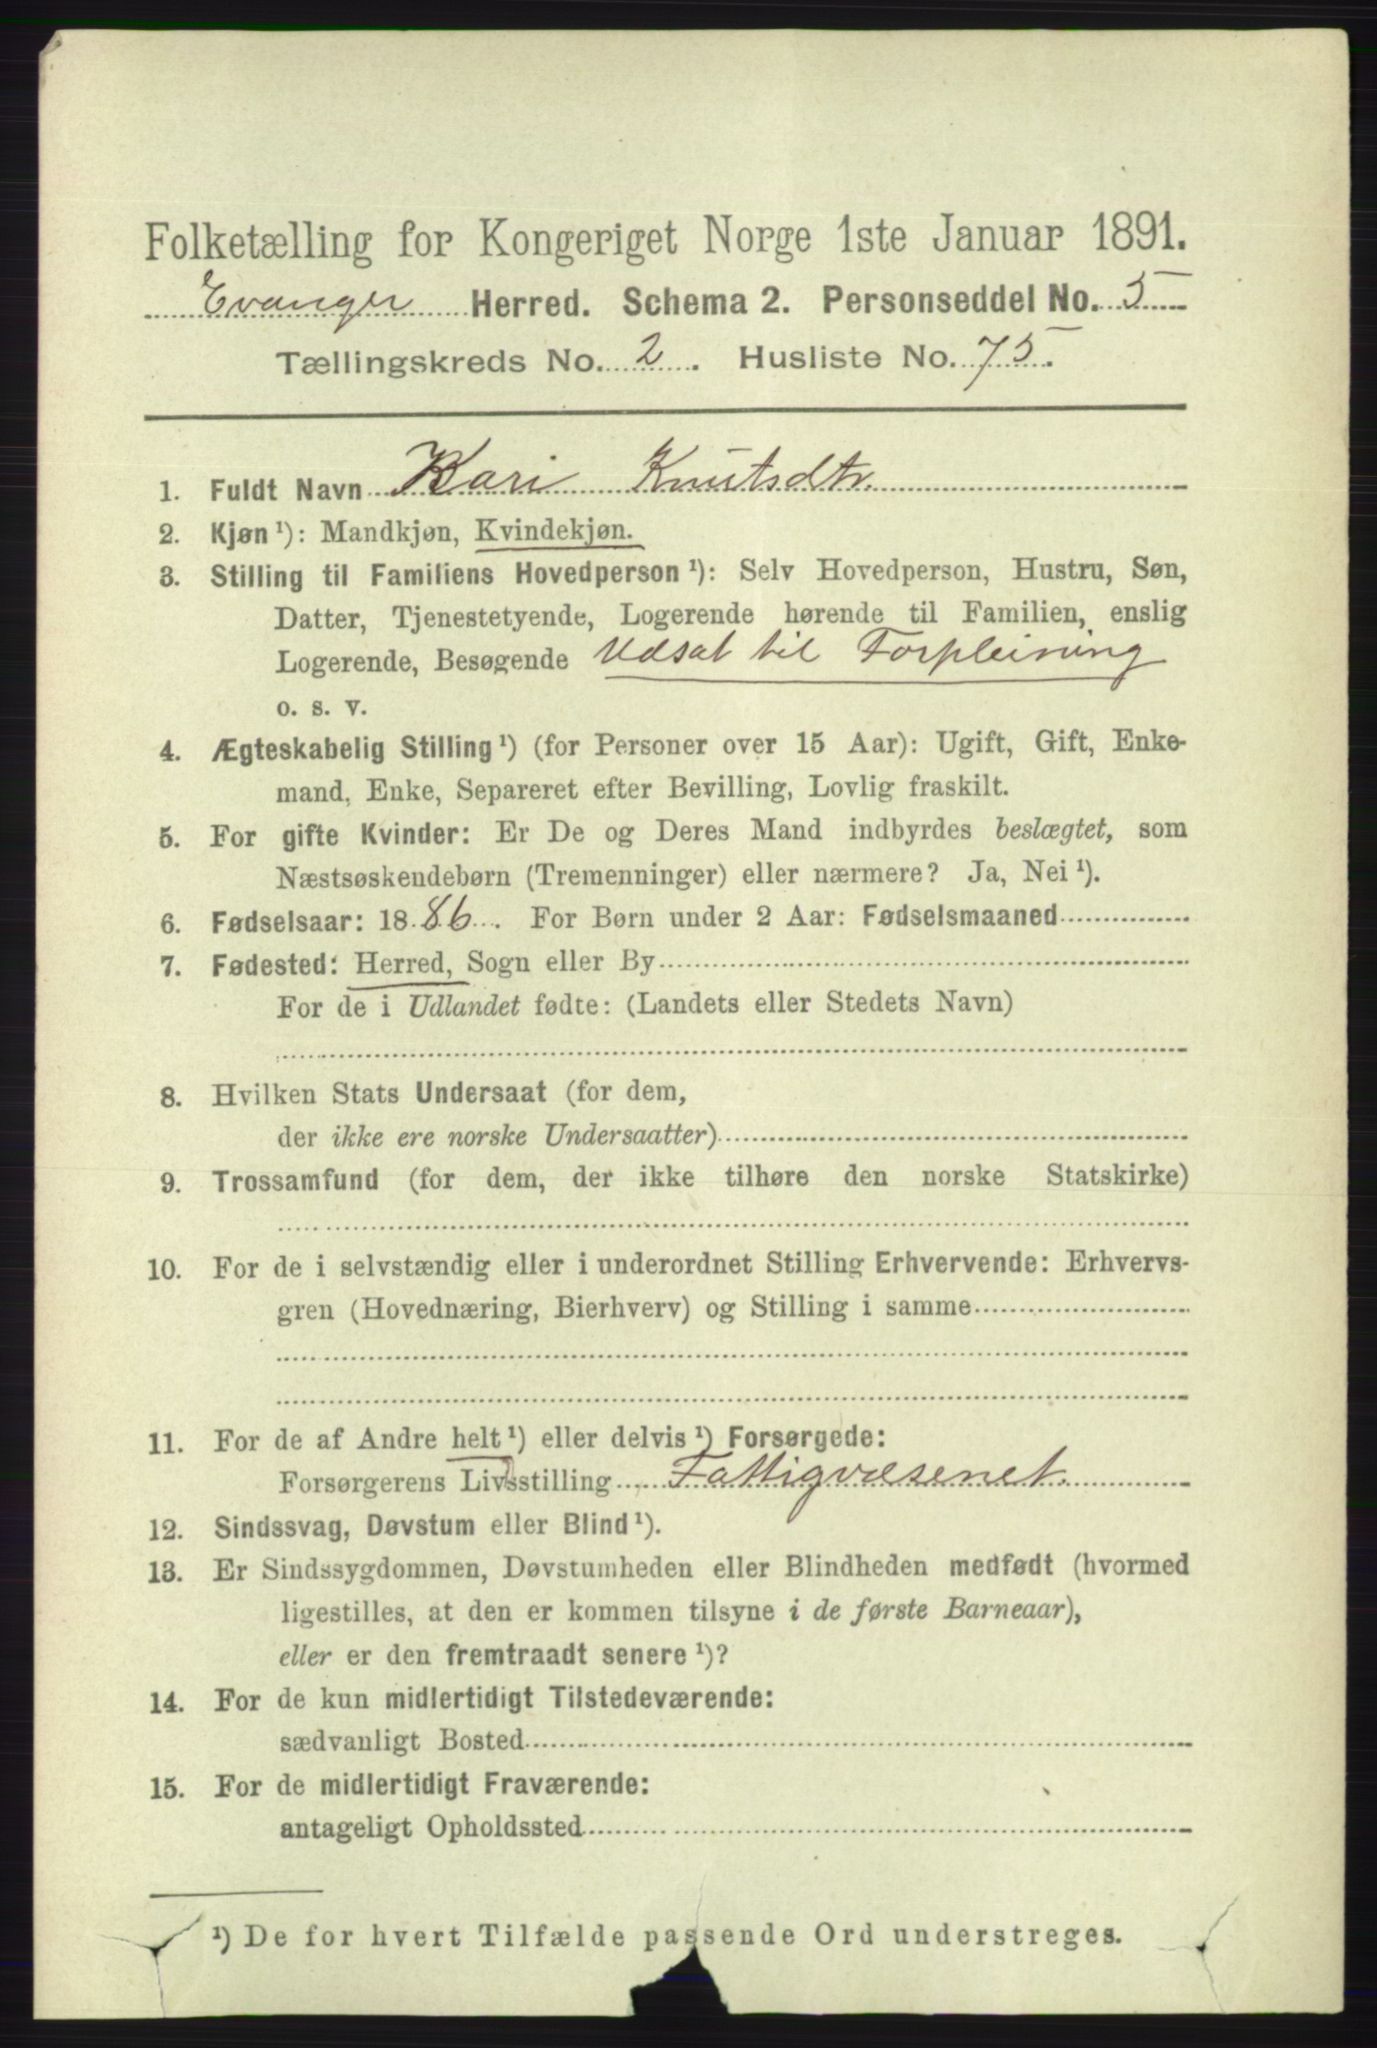 Folketælling for Kongeriget Norge 1ste Januar 1891.
Evanger Herred. Schema 2. Personseddel No. 5
Tællingskreds No. 2. Husliste No. 75.
1. Fuldt Navn Kari Knutsdtr.
2. Kjøn ¹): Mandkjøn, Kvindekjøn.
3. Stilling til Familiens Hovedperson ¹): Selv Hovedperson, Hustru, Søn,
Datter, Tjenestetyende, Logerende hørende til Familien, enslig
Logerende, Besøgende Udsat til Forpleining
o. s. v.
4. Ægteskabelig Stilling ¹) (for Personer over 15 Aar): Ugift, Gift, Enke-
mand, Enke, Separeret efter Bevilling, Lovlig fraskilt.
5. For gifte Kvinder: Er De og Deres Mand indbyrdes beslægtet, som
Næstsøskendebørn (Tremenninger) eller nærmere? Ja, Nei ¹).
6. Fødselsaar: 1886. For Børn under 2 Aar: Fødselsmaaned
7. Fødested: Herred, Sogn eller By
For de i Udlandet fødte: (Landets eller Stedets Navn)
8. Hvilken Stats Undersaat (for dem,
der ikke ere norske Undersaatter)
9. Trossamfund (for dem, der ikke tilhøre den norske Statskirke)
10. For de i selvstændig eller i underordnet Stilling Erhvervende: Erhvervs-
gren (Hovednæring, Bierhverv) og Stilling i samme
11. For de af Andre helt ¹) eller delvis ¹) Forsørgede:
Forsørgerens Livsstilling Fattigvæsenet.
12. Sindssvag, Døvstum eller Blind ¹).
13. Er Sindssygdommen, Døvstumheden eller Blindheden medfødt (hvormed
ligestilles, at den er kommen tilsyne i de første Barneaar),
eller er den fremtraadt senere ¹)?
14. For de kun midlertidigt Tilstedeværende:
sædvanligt Bosted
15. For de midlertidigt Fraværende:
antageligt Opholdssted
¹) De for hvert Tilfælde passende Ord understreges.